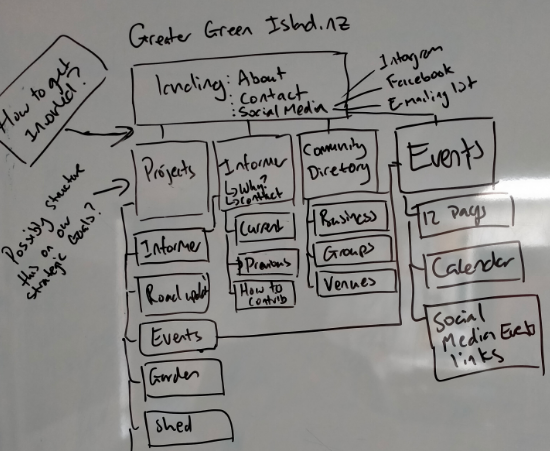 Greater Green Island.nz
How to get
Involved?
landing: About
: Contact
: Social Media
Instagram
Facebook
Emailing list
Possibly structure
this on our
strategic goals?
Projects
Informer
Road update
Events
Garden
Shed
Informer
↳ Why?
↳ Contact
Current
Previous
How to
contrib
Community
Directory
Business
Groups
Venues
Events
12 Days
Calendar
Social
Media Event
links